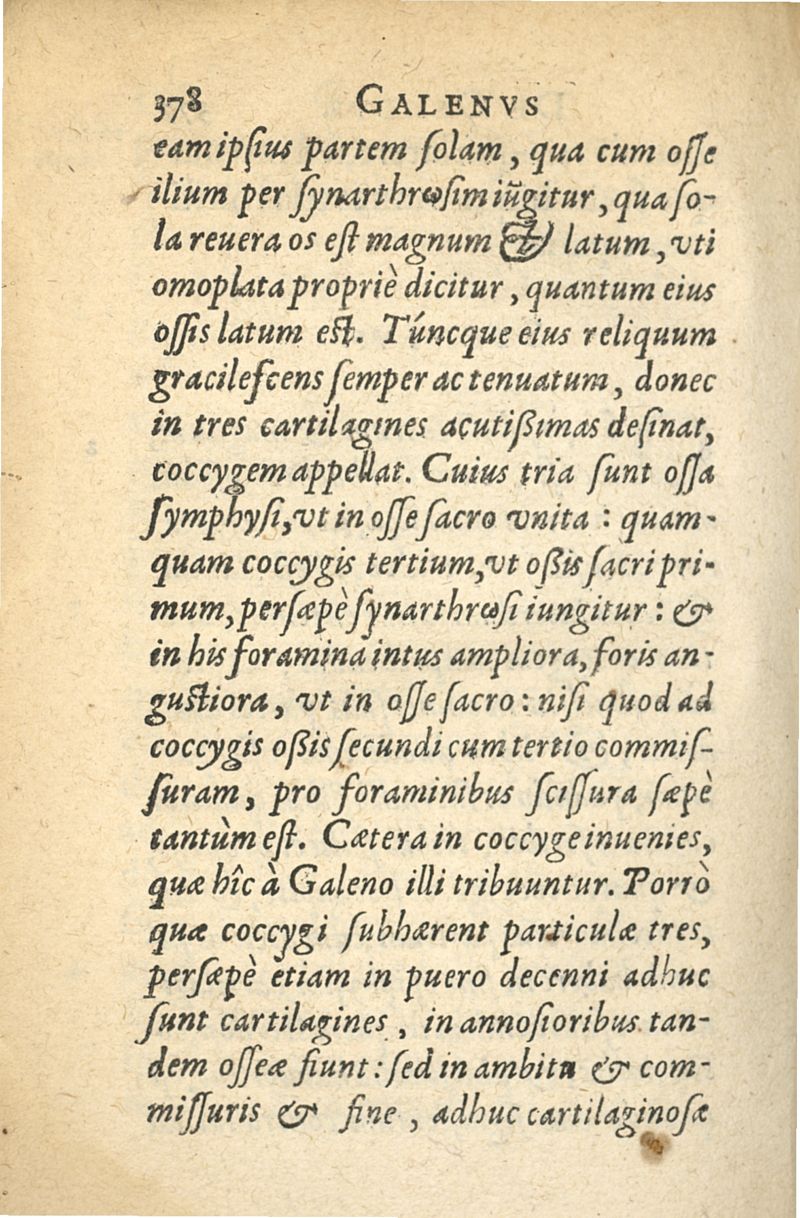 378 GALENVS
eam ipſius partem ſolam, qua cum oſſe
ilium per ſynarthrωſim iūgitur, qua ſo-
la reuera os eſt magnum & latum, vti
omoplata propriè dicitur, quantum eius
oſſis latum est. Túncque eius reliquum
gracileſcens ſemper ac tenuatum, donec
in tres cartilagines acutißimas deſinat,
coccygem appellat. Cuius tria ſunt oſſa
ſymphyſi, vt in oſſe ſacro vnita : quam-
quam coccygis tertium, vt oßis ſacri pri-
mum, perſæpè ſynarthrωſi iungitur : &
in his foramina intus ampliora, foris an-
gustiora, vt in oſſe ſacro : niſi quod ad
coccygis oßis ſecundi cum tertio commiſ-
ſuram, pro foraminibus ſciſſura ſæpè
tantùm eſt. Cætera in coccyge inuenies,
quæ hîc à Galeno illi tribuuntur. Porrò
quæ coccygi ſubhærent particulæ tres,
perſæpè etiam in puero decenni adhuc
ſunt cartilagines, in annoſioribus tan-
dem oſſeæ fiunt : ſed in ambitu & com-
miſſuris & fine, adhuc cartilaginoſæ